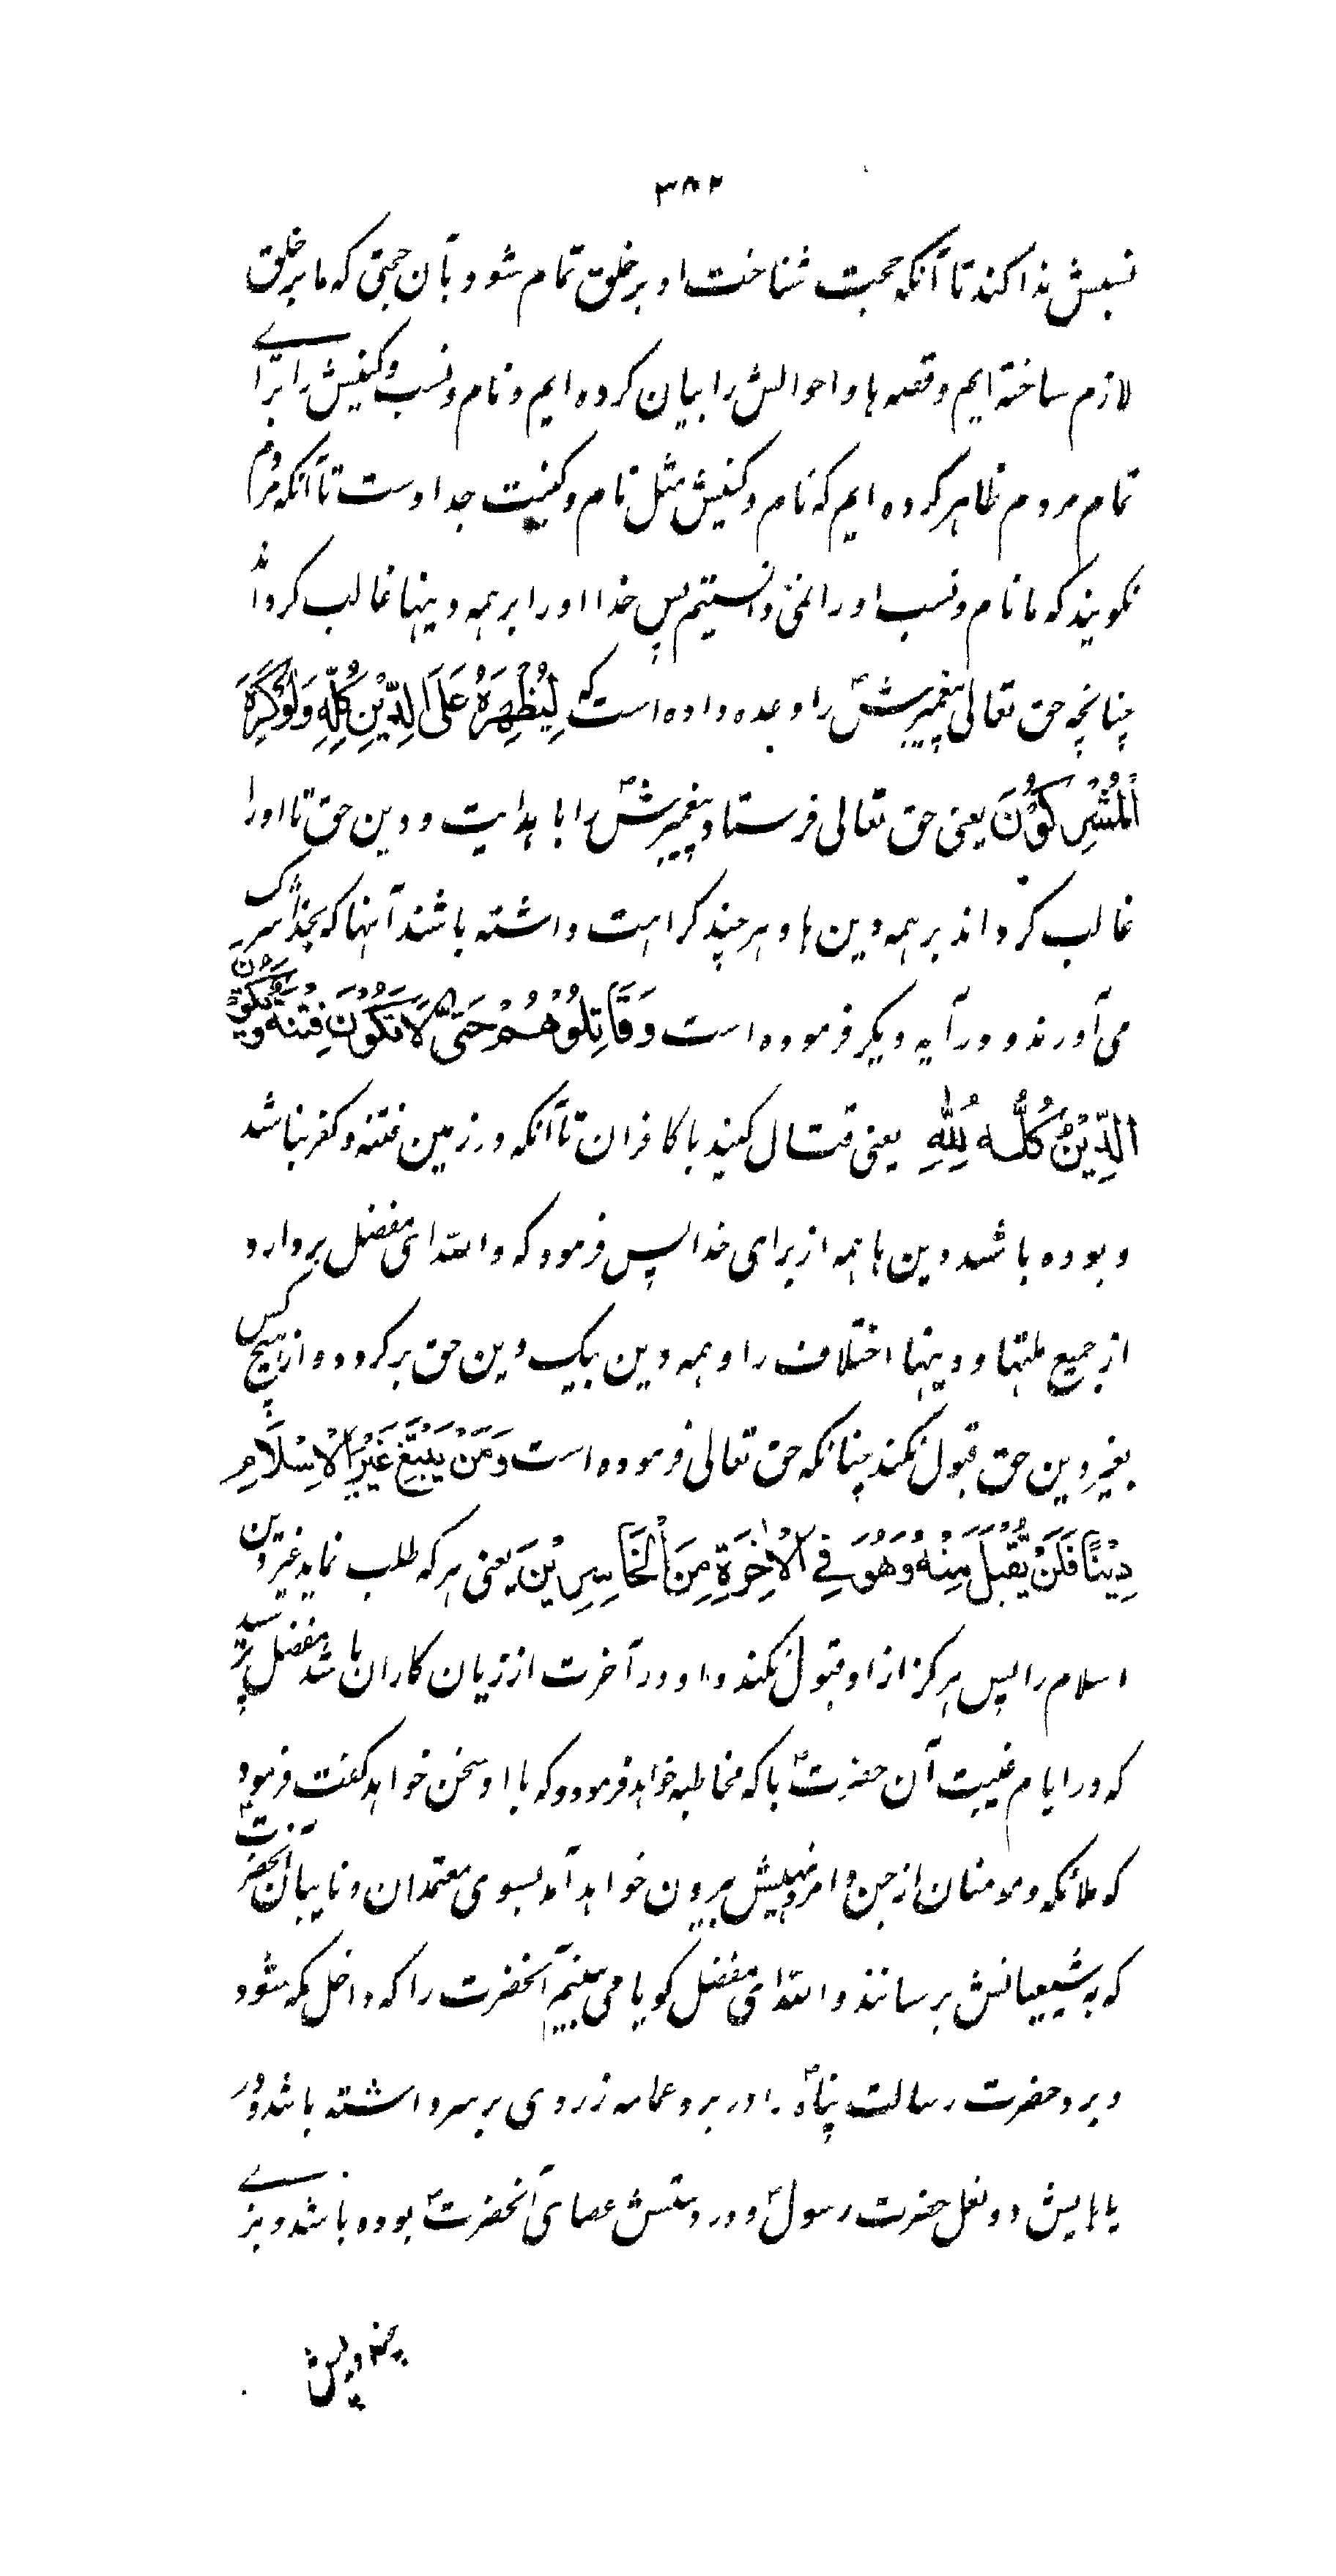 ۳۸۲
نسبش ندا کند تا آنکه حجت شناخت او بر خلق تمام شود بآن حجتی که ما بر خلق
لازم ساخته ایم و قصه ها و احوالش را بیان کرده ایم و نام و نسب و کنیتش را برای
تمام مردم ظاهر کرده ایم که نام و کنیتش مثل نام و کنیت جد اوست تا آنکه مردم
نکویند که ما نام و نسب او را نمی دانستیم پس خدا او را بر همه دینها غالب کرداند
چنانچه حق تعالی پیغمبرشؐ را وعده داده است که لِيُظْهِرَهُ عَلَى الدِّيْنِ كُلِّهِ وَلَوْ كَرِهَ
الْمُشْرِكُوْنَ یعنی حق تعالی فرستاد پیغمبرشؐ را با هدایت و دین حق تا او را
غالب کرداند بر همه دین ها و هر چند کراهت داشته باشند آنها که بخدا شرک
می آورند و در آیه دیکر فرموده است وَقَاتِلُوْهُمْ حَتّٰى لَا تَكُوْنَ فِتْنَةٌ وَيَكُوْنَ
الدِّيْنُ كُلُّهُ لِلّٰهِ یعنی قتال کنید با کافران تا آنکه در زمین فتنه و کفر نباشد
و بوده باشد دین ها همه از برای خدا پس فرمود که والله ای مفضل بردارد
از جمیع ملتها و دینها اختلاف را و همه دین بیک دین حق بر کردد و از هیچ کس
بغیر دین حق قبول نکند چنانکه حق تعالی فرموده است وَمَنْ يَبْتَغِ غَيْرَ الْاِسْلَامِ
دِيْنًا فَلَنْ يُقْبَلَ مِنْهُ وَهُوَ فِي الْاٰخِرَةِ مِنَ الْخَاسِرِيْنَ یعنی هر که طلب نماید غیر دین
اسلام را پس هرکز از او قبول نکند و او در آخرت از زیان کاران باشد مفضل پرسید
که در ایام غیبت آن حضرتؑ با که مخاطبه خواهد فرمود و که با او سخن خواهد کفت فرمود
که ملائکه و مؤمنان از جن و امر و نهیش بیرون خواهد آمد بسوی معتمدان و نایبان آنحضرتؑ
که به شیعیانش برسانند والله ای مفضل کویا می بینم آنحضرت را که داخل مکه شود
و برد حضرت رسالت پناهؐ را در بر و عمامه زردی بر سر داشته باشد و در
پاهایش دو نعل حضرت رسولؐ و در دستش عصای آنحضرتؐ بوده باشد و بزی
چند در پیش